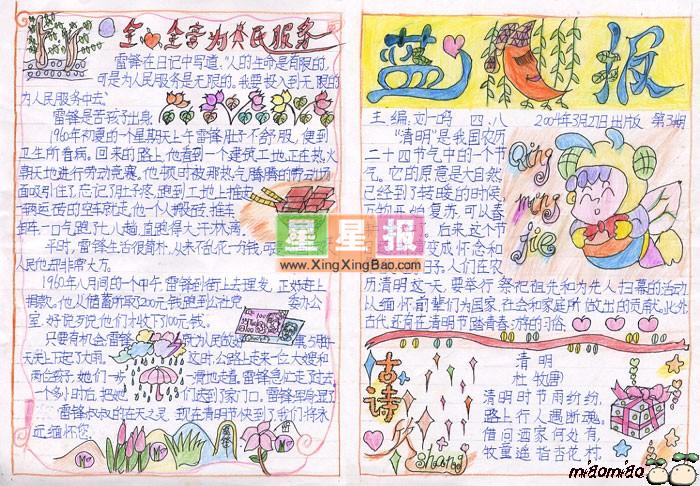 全心全意为人民服务
雷锋在日记中写道,"人的生命是有限的,
可是为人民服务是无限的。我要投入到无限的
为人民服务中去"
雷锋是苦孩子出身
1960年初夏的一个星期天上午雷锋肚子不舒服,便到
卫生所看病。回来的路上,他看到一个建筑工地正在热火
朝天地进行劳动竞赛。他顿时被那热气腾腾的劳动场
面吸引住了,忘记了肚子疼,跑到工地上推起
一辆运砖的空车就走,他一个人搬砖,推车
一口气跑了七八趟,直跑得大汗淋漓
平时,雷锋生活很简朴,从来不乱花一分钱,
人民他却非常大方。
1960年八月间的一个中午,雷锋到街上去理发,正好赶上
捐款。他从储蓄所取200元钱跑到公社党
委办公
室。好说歹说他们才收下了100元钱。
只要有机会雷锋
就为人民做好
天天上下起了大雨
这时,公路上走来一位大嫂和
两位孩子,她们一步
一滑地走着,雷锋急忙走了过去
一个多小时后,把她
们送到了家门口,雷锋浑身湿了
雷锋叔叔的在天之灵,现在清明节快到了我们将永
远缅怀您
蓝风报
主编刘一鸣 四、八 2009年3月27日出版 第3期
"清明"是我国农历
二十四节气中的一个节
气。它的原意是大自然
已经到了转暖的时候
万物开始复苏,可以春
后来,这个节
变成怀念和
人们在农
历清明这一天,要举行祭祀祖先和为先人扫墓的活动
以缅怀前辈们为国家,社会和家庭所做出的贡献。此外
古代,还有在清明节踏青春游的习俗。
Qing
ming
jie
古诗欣
shang
清明
杜牧
清明时节雨纷纷,
路上行人遇断魂。
借问酒家何处有,
牧童遥指杏花村
星星报
www.XingXingBao.com
miaomiao